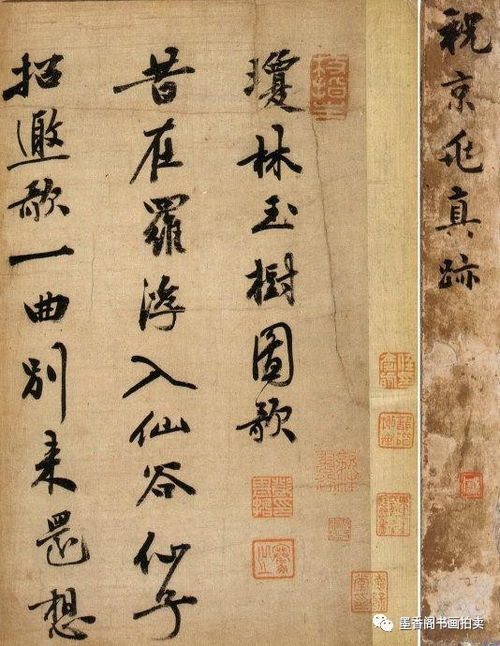 祝京兆真跡
瓊林玉樹圖歌
昔在羅浮入仙谷仙子
招邀歌一曲別來還想
墨香阁书画拍卖